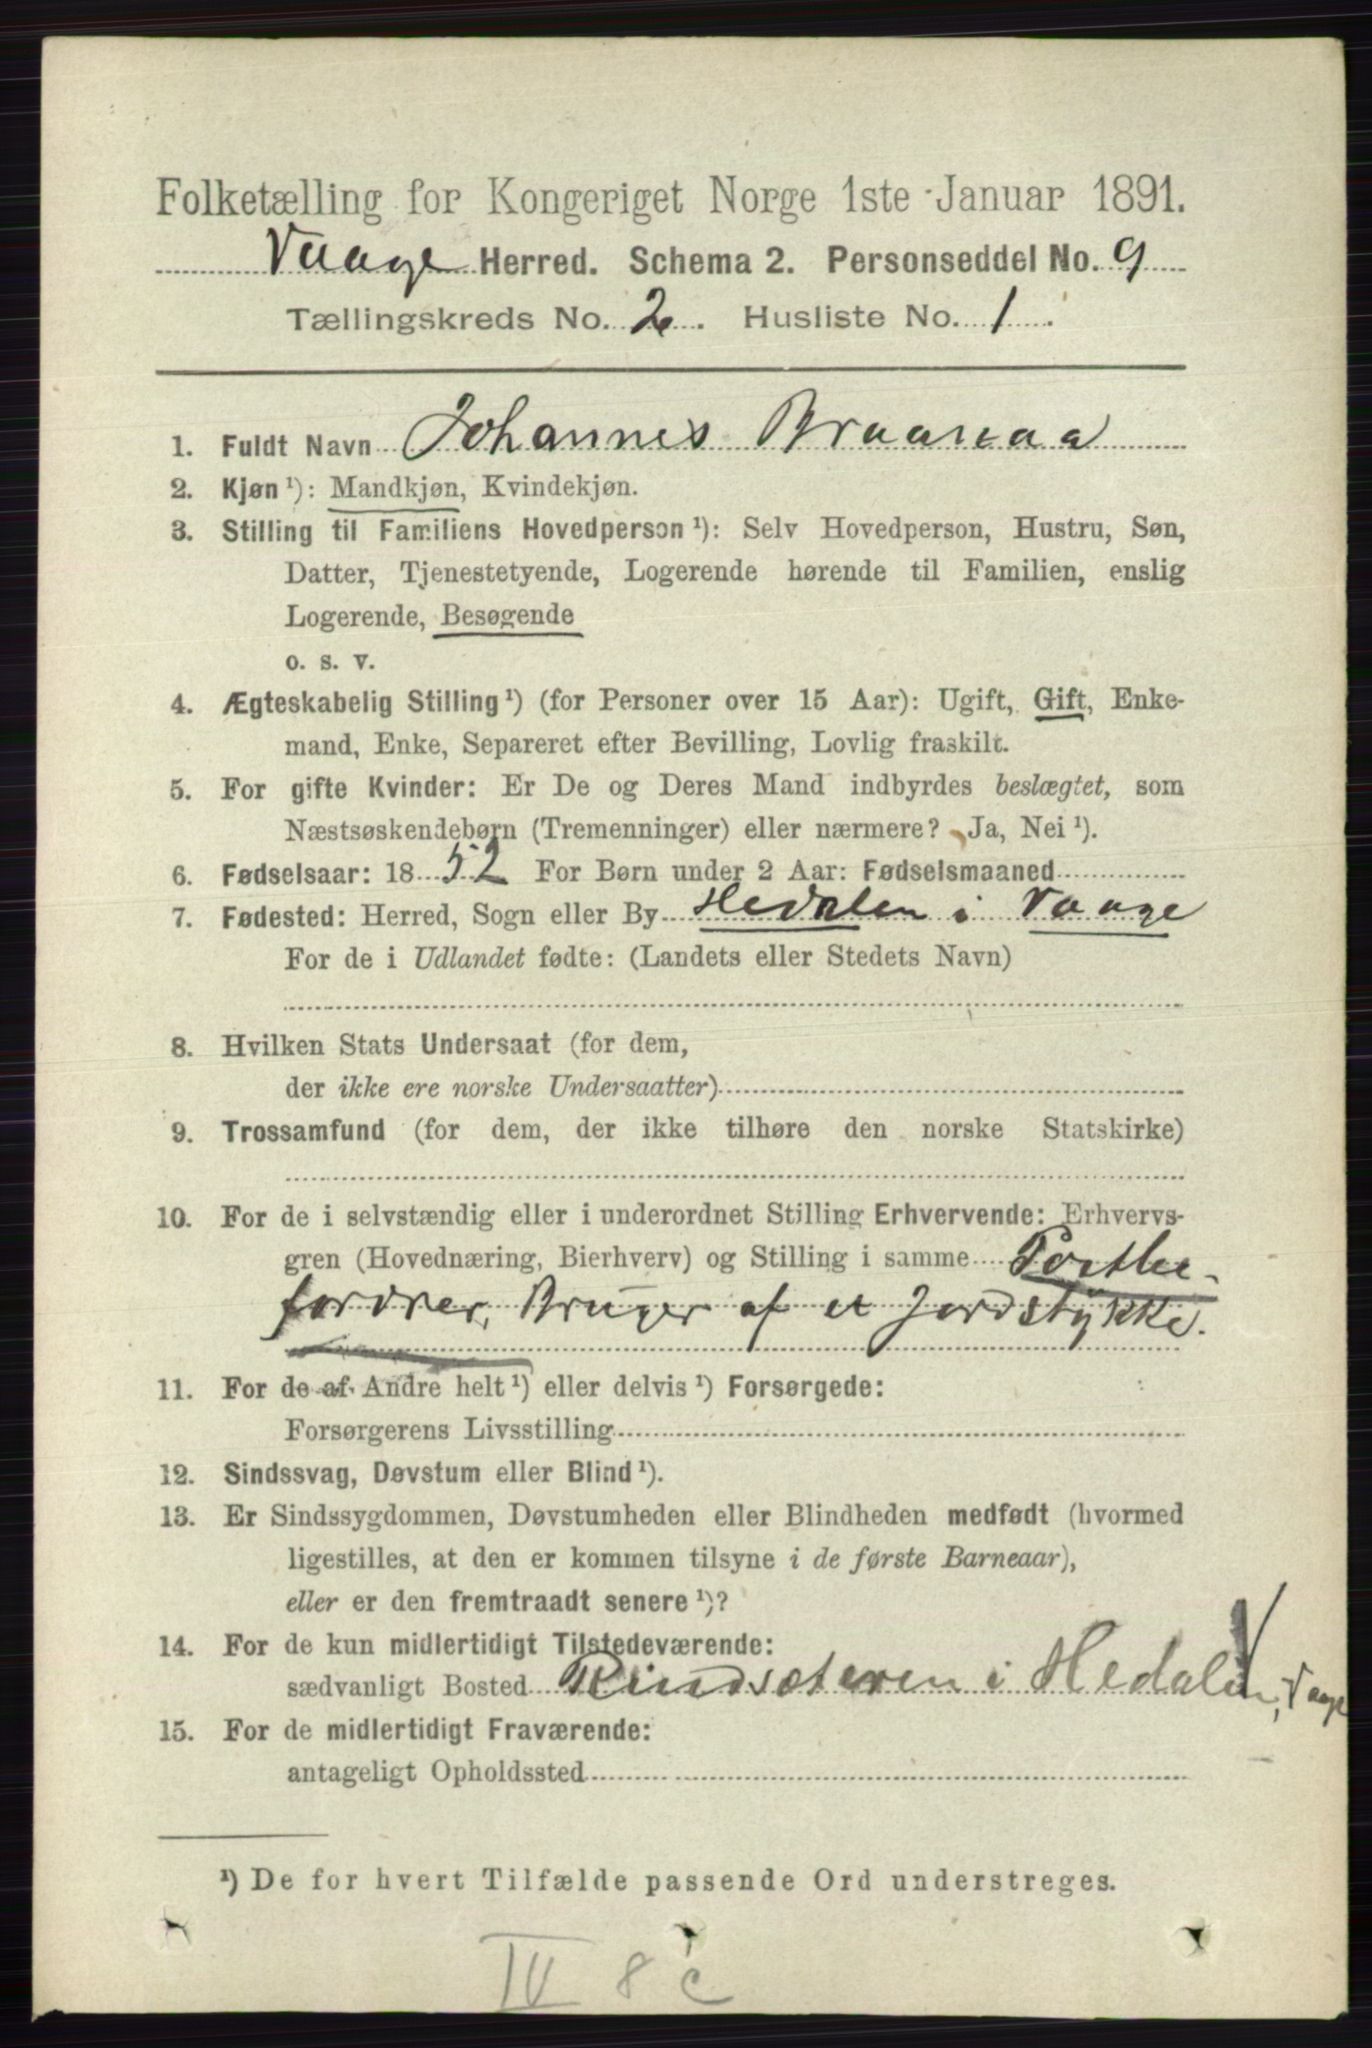 Folketælling for Kongeriget Norge 1ste Januar 1891.
Vaage Herred. Schema 2. Personseddel No. 9
Tællingskreds No. 2. Husliste No. 1.
1. Fuldt Navn Johannes
2. Kjøn ¹): Mandkjøn, Kvindekjøn.
3. Stilling til Familiens Hovedperson ¹): Selv Hovedperson, Hustru, Søn,
Datter, Tjenestetyende, Logerende hørende til Familien, enslig
Logerende, Besøgende
o. s. v.
4. Ægteskabelig Stilling ¹) (for Personer over 15 Aar): Ugift, Gift, Enke-
mand, Enke, Separeret efter Bevilling, Lovlig fraskilt.
5. For gifte Kvinder: Er De og Deres Mand indbyrdes beslægtet, som
Næstsøskendebørn (Tremenninger) eller nærmere? Ja, Nei ¹).
6. Fødselsaar: 1852 For Børn under 2 Aar: Fødselsmaaned
7. Fødested: Herred, Sogn eller By Hedalen i Vaage
For de i Udlandet fødte: (Landets eller Stedets Navn)
8. Hvilken Stats Undersaat (for dem,
der ikke ere norske Undersaatter)
9. Trossamfund (for dem, der ikke tilhøre den norske Statskirke)
10. For de i selvstændig eller i underordnet Stilling Erhvervende: Erhvervs-
gren (Hovednæring, Bierhverv) og Stilling i samme Postbe-
fordrer, Bruger af et Jordstykke.
11. For de af Andre helt ¹) eller delvis ¹) Forsørgede:
Forsørgerens Livsstilling
12. Sindssvag, Døvstum eller Blind ¹).
13. Er Sindssygdommen, Døvstumheden eller Blindheden medfødt (hvormed
ligestilles, at den er kommen tilsyne i de første Barneaar),
eller er den fremtraadt senere ¹)?
14. For de kun midlertidigt Tilstedeværende:
sædvanligt Bosted Rindsæteren i Hedalen, Vaage
15. For de midlertidigt Fraværende:
antageligt Opholdssted
¹) De for hvert Tilfælde passende Ord understreges.
IV 8 c